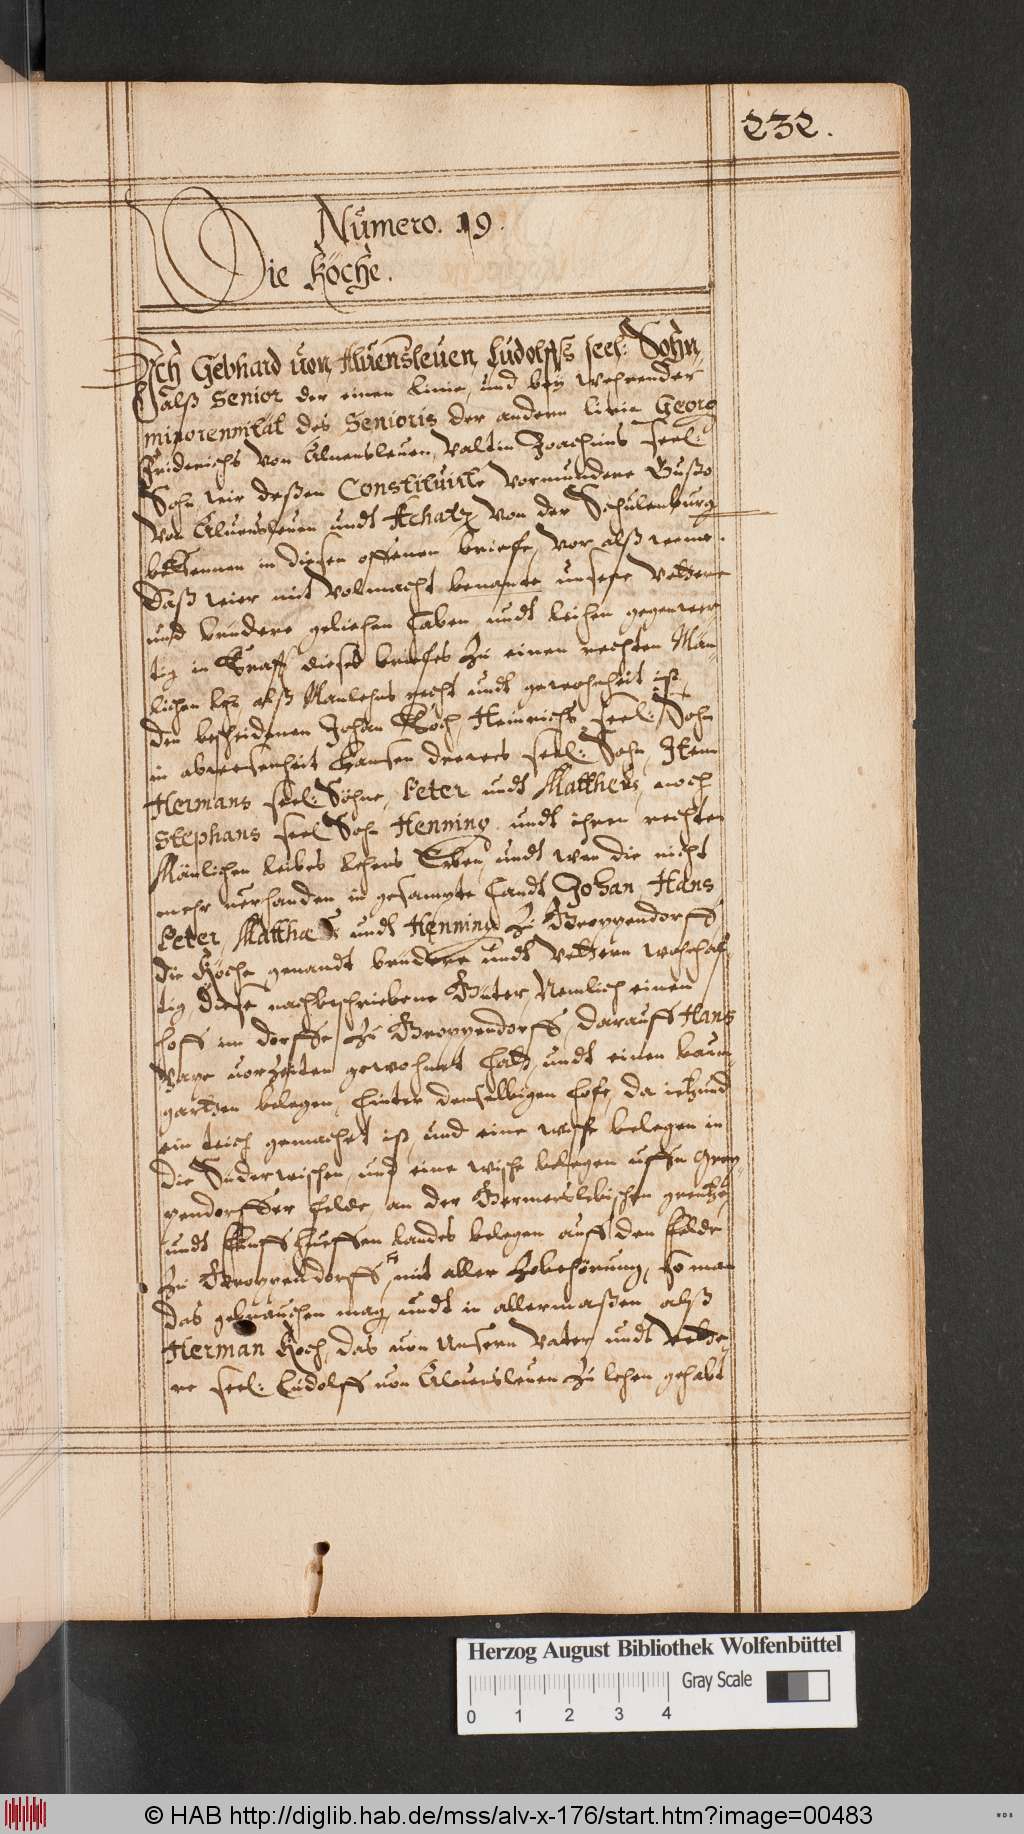 232.
Numero. 19.
Die Köche.
Ich Gebhard von Alvensleven, Ludolffs seel: Sohn,
alß Senior der einen linie, und bey wehrender
minorennität des Senioris der andern linie Georg
Friderichs von Alvensleven, Valtin Joachims seel:
Sohn, wir deßen Constituirte Vormündere Bußo
von Alvensleven undt Achatz von der Schulenburg
bekennen in diesen offenen briefe, vor alß
Daß wier mit Volmacht benante unsere Vettern
und brüdere geliehen haben undt leihen gegenwer
tig in Krafft dieses briefes zu einen rechten Man-
lichen alß Manlehns recht undt gewohnheit ist,
den bescheidenen Johan Koch, Heinrichs seel: Sohn
in abwesenheit Hansen seel: Sohn, Item
Hermans seel: Söhne, Peter undt Mattheus, noch
Stephans seel Sohn Henning, undt ihren rechten
Mänlichen leibes lehns Erben, undt wan die nicht
mehr verhanden, in gesampte handt Johan, Hans
Peter, Matthæs undt Henning zu Groppendorff
die Köche genandt brüdere undt Vettern wohnhaf-
tig diese nachbeschriebene Güter, Nemlich einen
hoff im dorffe zu Groppendorff, darauff Hans
vorzeiten gewohnet hatt, undt einen baum
gartten belegen, hinter demselbigen hofe, da ietzund
ein teich gemachet ist, und eine wische belegen in
die Süderwischen, und eine wische belegen uffn Grop-
pendorffer felde, an der Germerslebischen grentze,
undt hueffen landes belegen auff den felde
zu Groppendorff, mit aller Zobehörung, so man
das gebrauchen mag, undt in allermaßen, alß
Herman Koch, das von Unsern Vater undt Vette-
re seel: Ludolff von Alvensleven zu lehen gehabt
Herzog August Bibliothek Wolfenbüttel
Gray Scale
0 1 2 3 4
© HAB http://diglib.hab.de/mss/alv-x-176/start.htm?image=00483